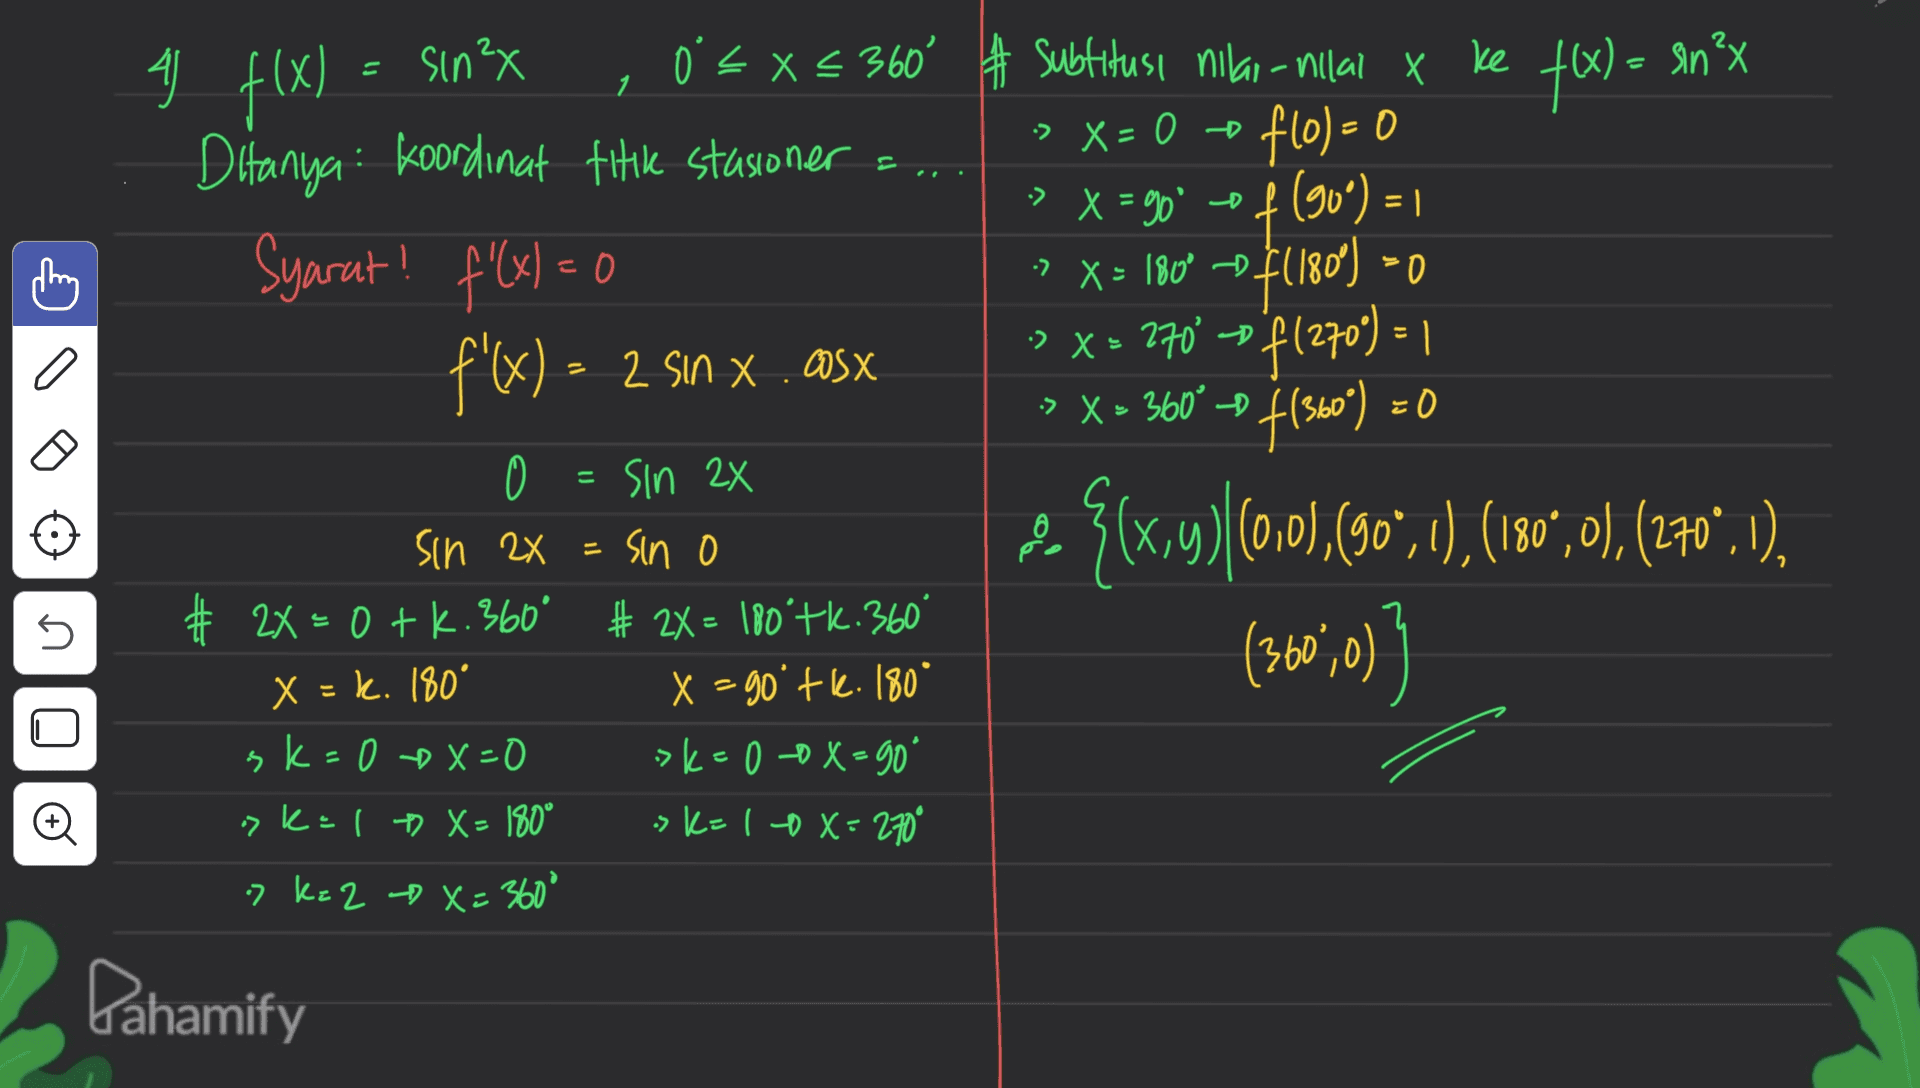 4) f(x) = sin²x , 0° ≤ x ≤ 360°
Ditanya : koordinat titik stasioner = ...
Syarat! f'(x) = 0
f'(x) = 2 sin x . cos x
0 = sin 2x
sin 2x = sin 0
# 2x = 0 + k.360°
x = k. 180°
→ k = 0 → x = 0
→ k = 1 → x = 180°
→ k = 2 → x = 360°
# 2x = 180° + k.360°
x = 90° + k. 180°
→ k = 0 → x = 90°
→ k = 1 → x = 270°
# Subtitusi nilai-nilai x ke f(x) = sin²x
→ x = 0 → f(0) = 0
→ x = 90° → f(90°) = 1
→ x = 180° → f(180°) = 0
→ x = 270° → f(270°) = 1
→ x = 360° → f(360°) = 0
∴ {(x,y)|(0,0),(90°,1),(180°,0),(270°,1),
(360°,0)}
Pahamify